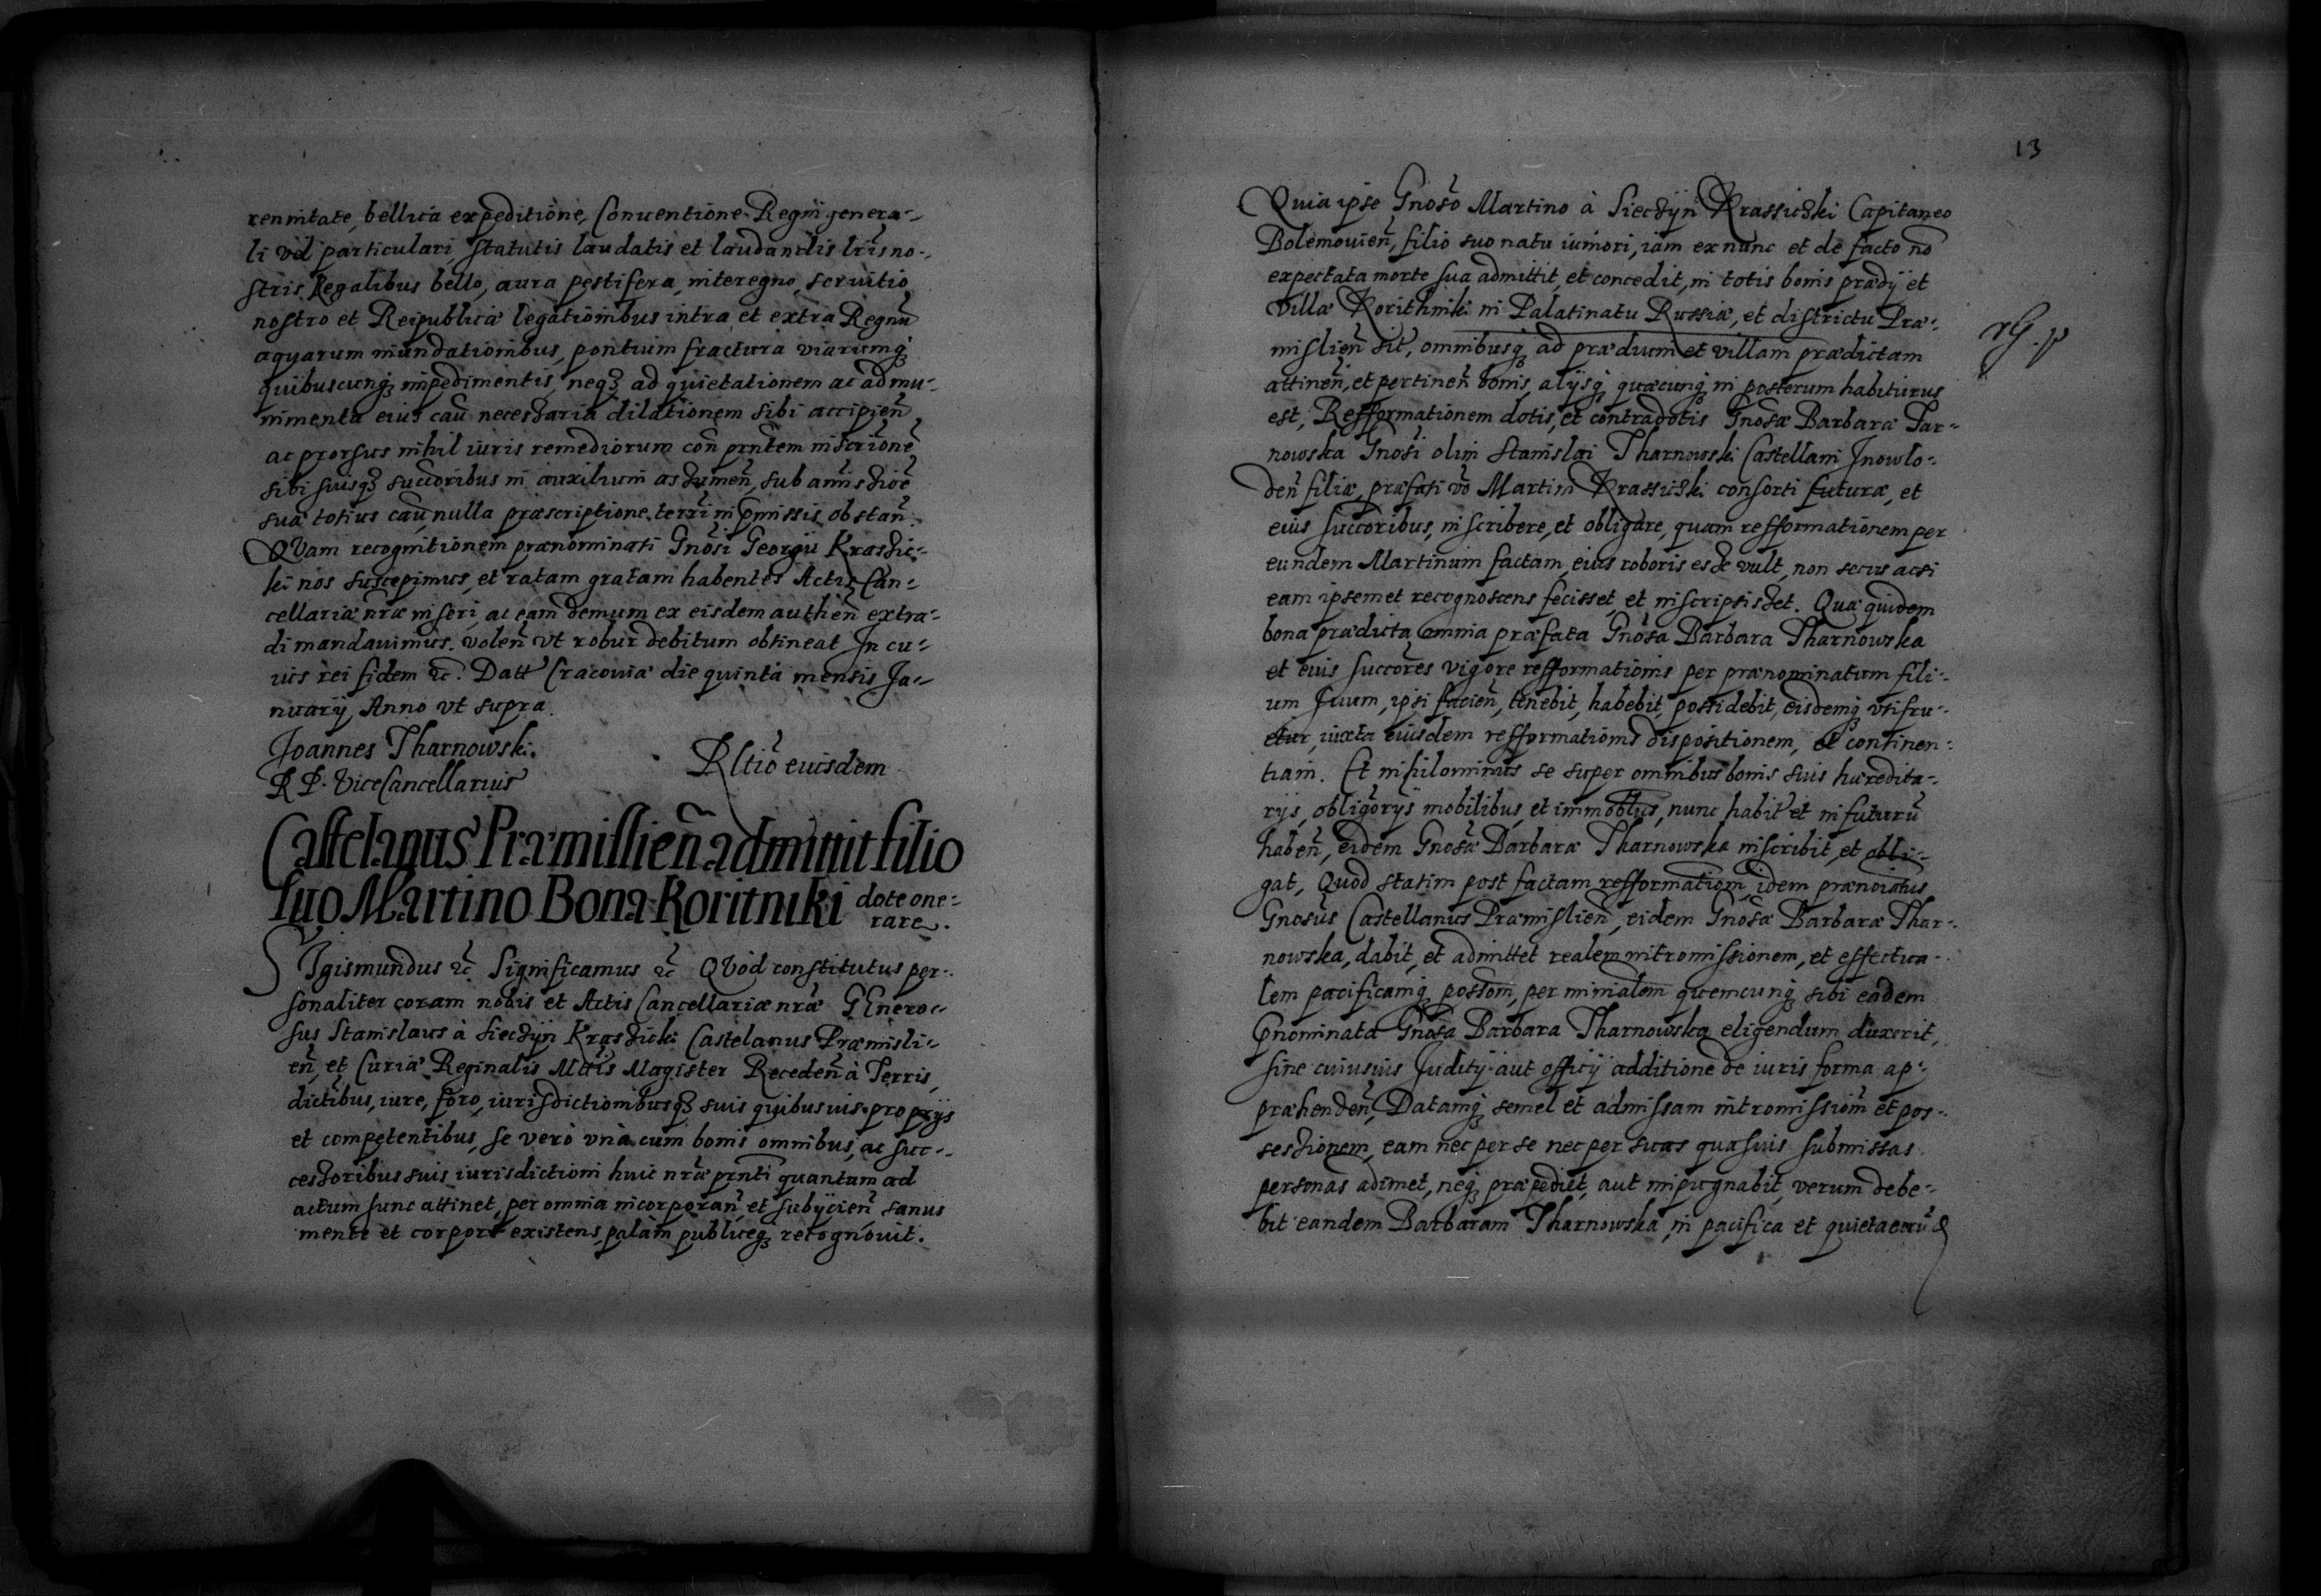 rennitate, bellica expeditione, Conuentione Regni genera-
li vel particulari, statutis laudatis et laudandis lris no-
stris Regalibus bello, aura pestifera, interegno, seruitio
nostro et Reipublicæ legationibus intra et extra Regnũ
aquarum inundationibus, pontium fractura viarumq₃
quibuscunq₃ impedimentis, neq₃ ad quietationem ac ad mu-
nimenta eius cau necessaria dilationem sibi accipien̄
ac prorsus nihil iuris remediorum con̄ prn̄tem inscrionē
sibi suisq₃ succoribus in auxilium assumen̄, sub amissioē
sua totius cau, nulla præscriptione terri in p̄missis obstan̄.
QVam recognitionem prænominati Gnosi Georgii Krassic-
ki nos suscepimus, et ratam gratam habentes Actis Can-
cellariæ nræ inseri, ac eam demum ex eisdem authen̄ extra-
di mandauimus. volen̄ vt robur debitum obtineat. In cu-
ius rei fidem &c. Datt Cracouiæ die quinta mensis Ja-
nuarij, Anno vt supra.
Joannes Tharnowski.
R P. ViceCancellarius
Rltio eiusdem
Castelanus Præmislien̄ admittit filio
suo Martino Bona Koritniki dote one-
rare.
SIgismundus &c Significamus &c QVod constitutus per-
sonaliter coram nobis et Actis Cancellariæ nræ GEnero-
sus Stanislaus à Siecżyn Krassicki Castelanus Præmisli-
en̄, et Curiæ Reginalis Mttis Magister Receden̄ à Terris,
dictibus, iure, foro, iurisdictionibusq₃ suis quibusuis proprijs
et competentibus, se verò vnà cum bonis omnibus, ac suc-
cessoribus suis iurisdictioni huic nræ prn̄ti quantum ad
actum hunc attinet, per omnia incorporan̄ et subijcien̄ sanus
mente et corpore existens, palàm publiceq₃ recognouit.
13
Quia ipse Gnoso Martino à Siecżyn Krassicżki Capitaneo
Bolemouien̄, filio suo natu iuniori, iam ex nunc et de facto nō
expectata morte sua admittit, et concedit, in totis bonis prædij et
Villæ Korithniki in Palatinatu Russiæ, et districtu Præ-
mislien̄ sit, omnibusq₃ ad prædium et villam prædictam
attinen̄, et pertinen̄ bonis, alijsq₃ quæcunq₃ in posterum habiturus
est, Refformationem dotis, et contradotis Gnosæ Barbaræ Tar-
nowska Gnosi olim Stanislai Tharnowski Castellani Jnowlo-
den̄ filiæ, præfati vō Martini Krassicżki consorti futuræ, et
eius succoribus, inscribere, et obligare, quam refformationem per
eundem Martinum factam, eius roboris esse vult, non secus acsi
eam ipsemet recognoscens fecisset, et inscripsisset. Quæ quidem
bona prædicta omnia præfata Gnosa Barbara Tharnowska
et eius succores vigore refformationis per prænominatum fili-
um suum, ipsi facien̄, tenebit, habebit, possidebit, eisdemq₃ vtifru-
etur, iuxta eiusdem refformationis dispositionem, et continen-
tiam. Et nihilominus se super omnibus bonis suis hæredita-
rijs, obligorijs mobilibus, et immoblbus, nunc habit et in futurũ
haben̄, eidem Gnosæ Barbaræ Tharnowska inscribit, et obli-
gat, Quod statim post factam refformationm, idem prænoiatus
Gnosus Castellanus Præmislien̄, eidem Gnosæ Barbaræ Thar-
nowska, dabit, et admittet realem intromissionem, et effectua-
lem pacificamq₃ possom, per minialem quemcunq₃ sibi eadem
p̄nominata Gnosa Barbara Tharnowska eligendum duxerit,
sine cuiusuis Juditij aut officij additione de iuris forma ap-
præhenden̄, Datamq₃ semel et admissam intromissiom et pos-
sessionem, eam nec per se nec per suas quasuis submissas
personas adimet, neq₃ præpediet, aut impugnabit, verum debe-
bit eandem Barbaram Tharnowska, in pacifica et quieta eorũ